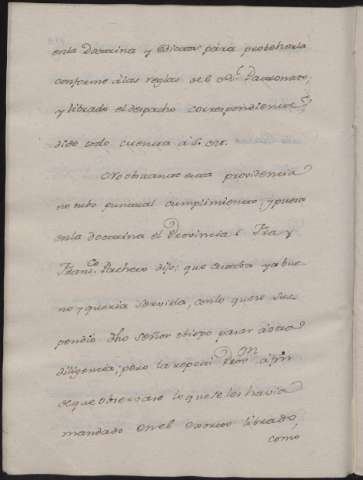 en la Doctrina y Edictos para proveherla
conforme a las reglas de el Rl. Patronato;
y librado el despacho correspondiente,
dio todo cuenta a S. M.
No obstante esta providencia
no tubo puntual cumplimiento, y puesto
en la doctrina el Provincial Fra y
Franco. Pacheco dijo: que estaba ya bue
no y queria servirla, con lo que se sus
pendio dho Señor obispo pasar a otra
diligencia; pero la repitio a fin
de que observase lo que se les havia
mandado en el Exorto librado,
como